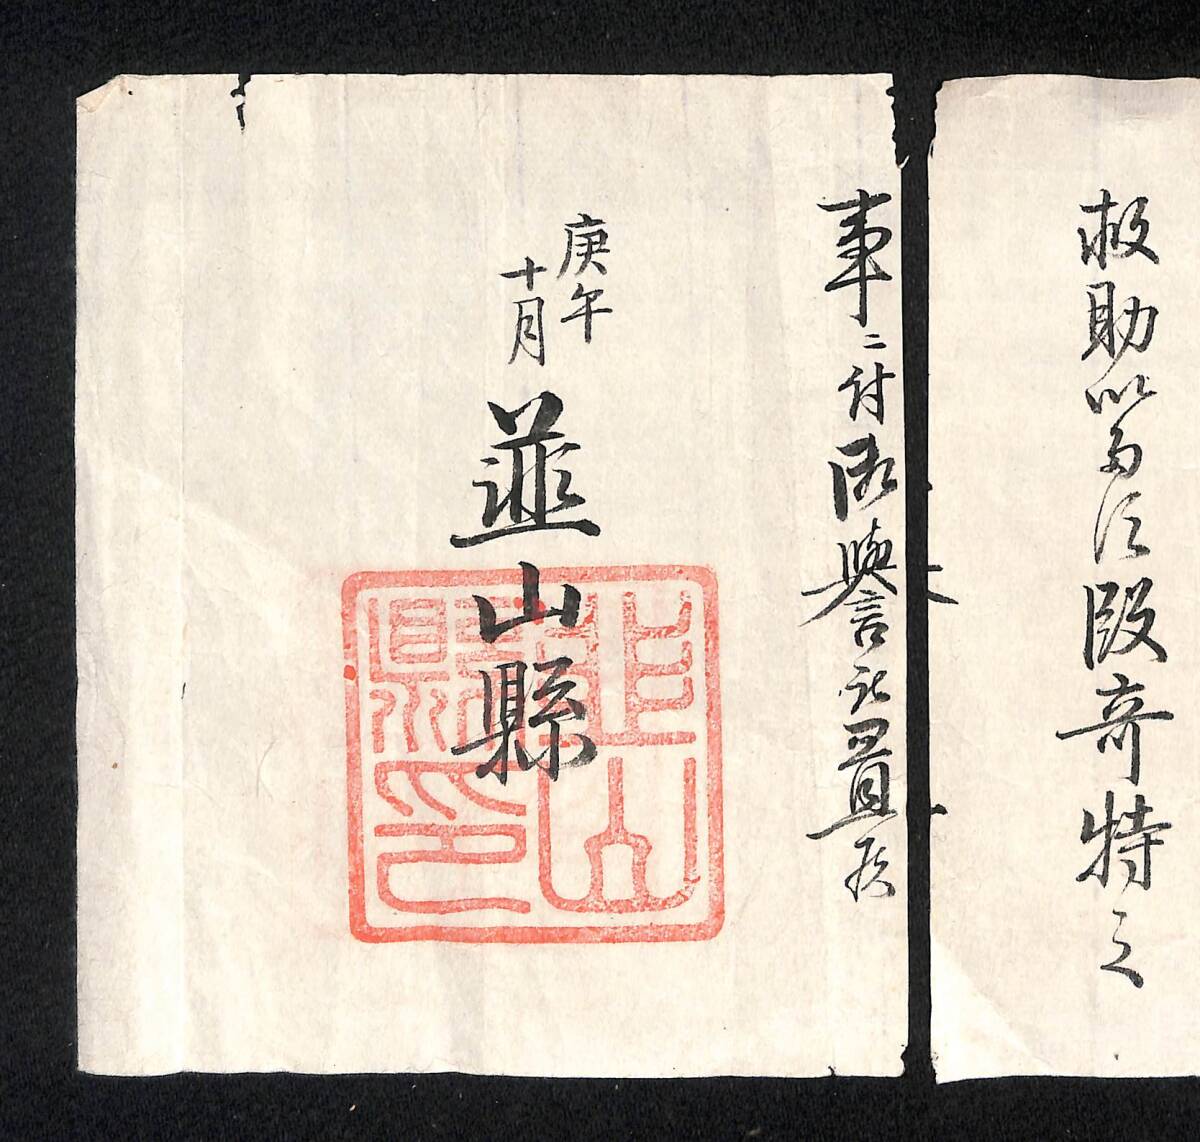 救助いたし候段奇特之
事ニ付譽置候
庚午
十月
韮山縣
韮山縣印